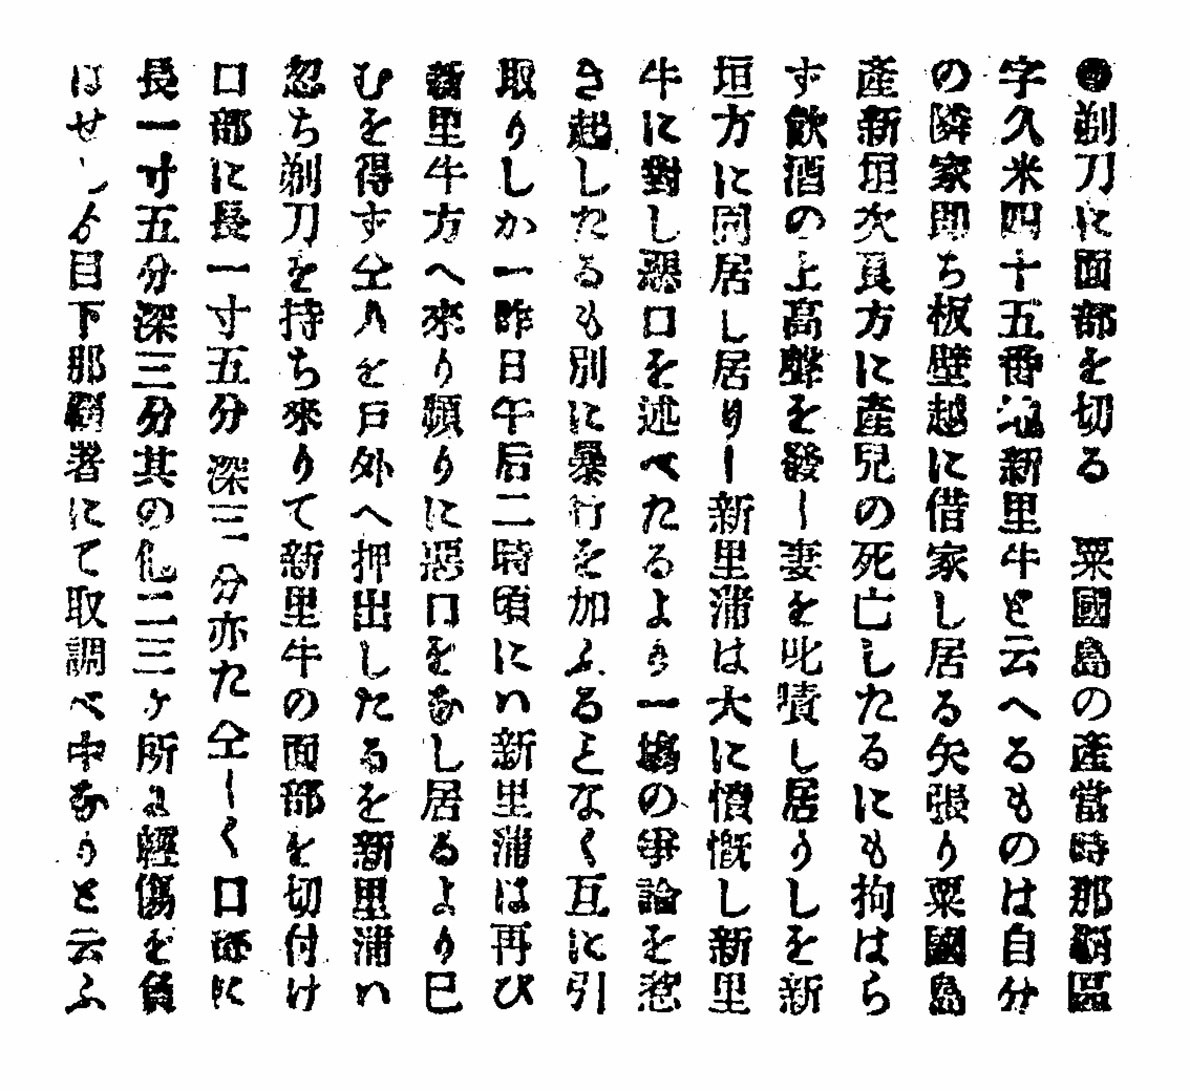 ●剃刀に面部を切る　粟國島の產當時那覇區
字久米四十五番地新里牛と云へるものは自分
の隣家即ち板壁越に借家し居る矢張り粟國島
產新垣次良方に產兒の死亡したるにも拘はら
す飮酒の上高聲を發し妻を叱嘖し居りしを新
垣方に同居し居りし新里蒲は大に憤慨し新里
牛に對し惡口を述べたるより一塲の爭論を惹
き起したるも別に暴行を加ふることなく互に引
取りしか一昨日午后二時頃にハ新里蒲は再び
新里牛方へ來り頻りに惡口をなし居るより已
むを得す仝人を戸外へ押出したるを新里蒲ハ
忽ち剃刀を持ち來りて新里牛の面部を切付け
口部に長一寸五分深三分亦た仝しく口部に
長一寸五分深三分其の他二三ヶ所に輕傷を負
はせしより目下那覇署にて取調べ中なりと云ふ